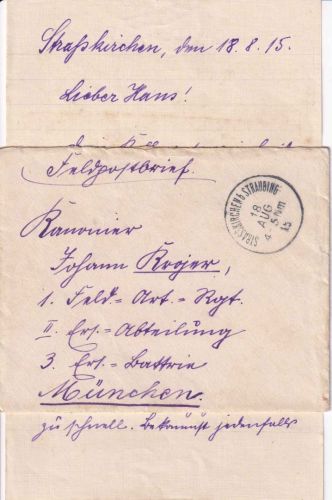 Straßkirchen, den 18.8.15.
Lieber Hans!
Feldpostbrief.
STRASSKIRCHEN b STRAUBING
18
AUG
4-5 Nm
15
Kanonier
Johann Krojer,
1. Feld-Art-Rgt.
II. Ers-Abteilung
3. Ers-Battrie
München.
zu schnell. Bekommst jedenfalls